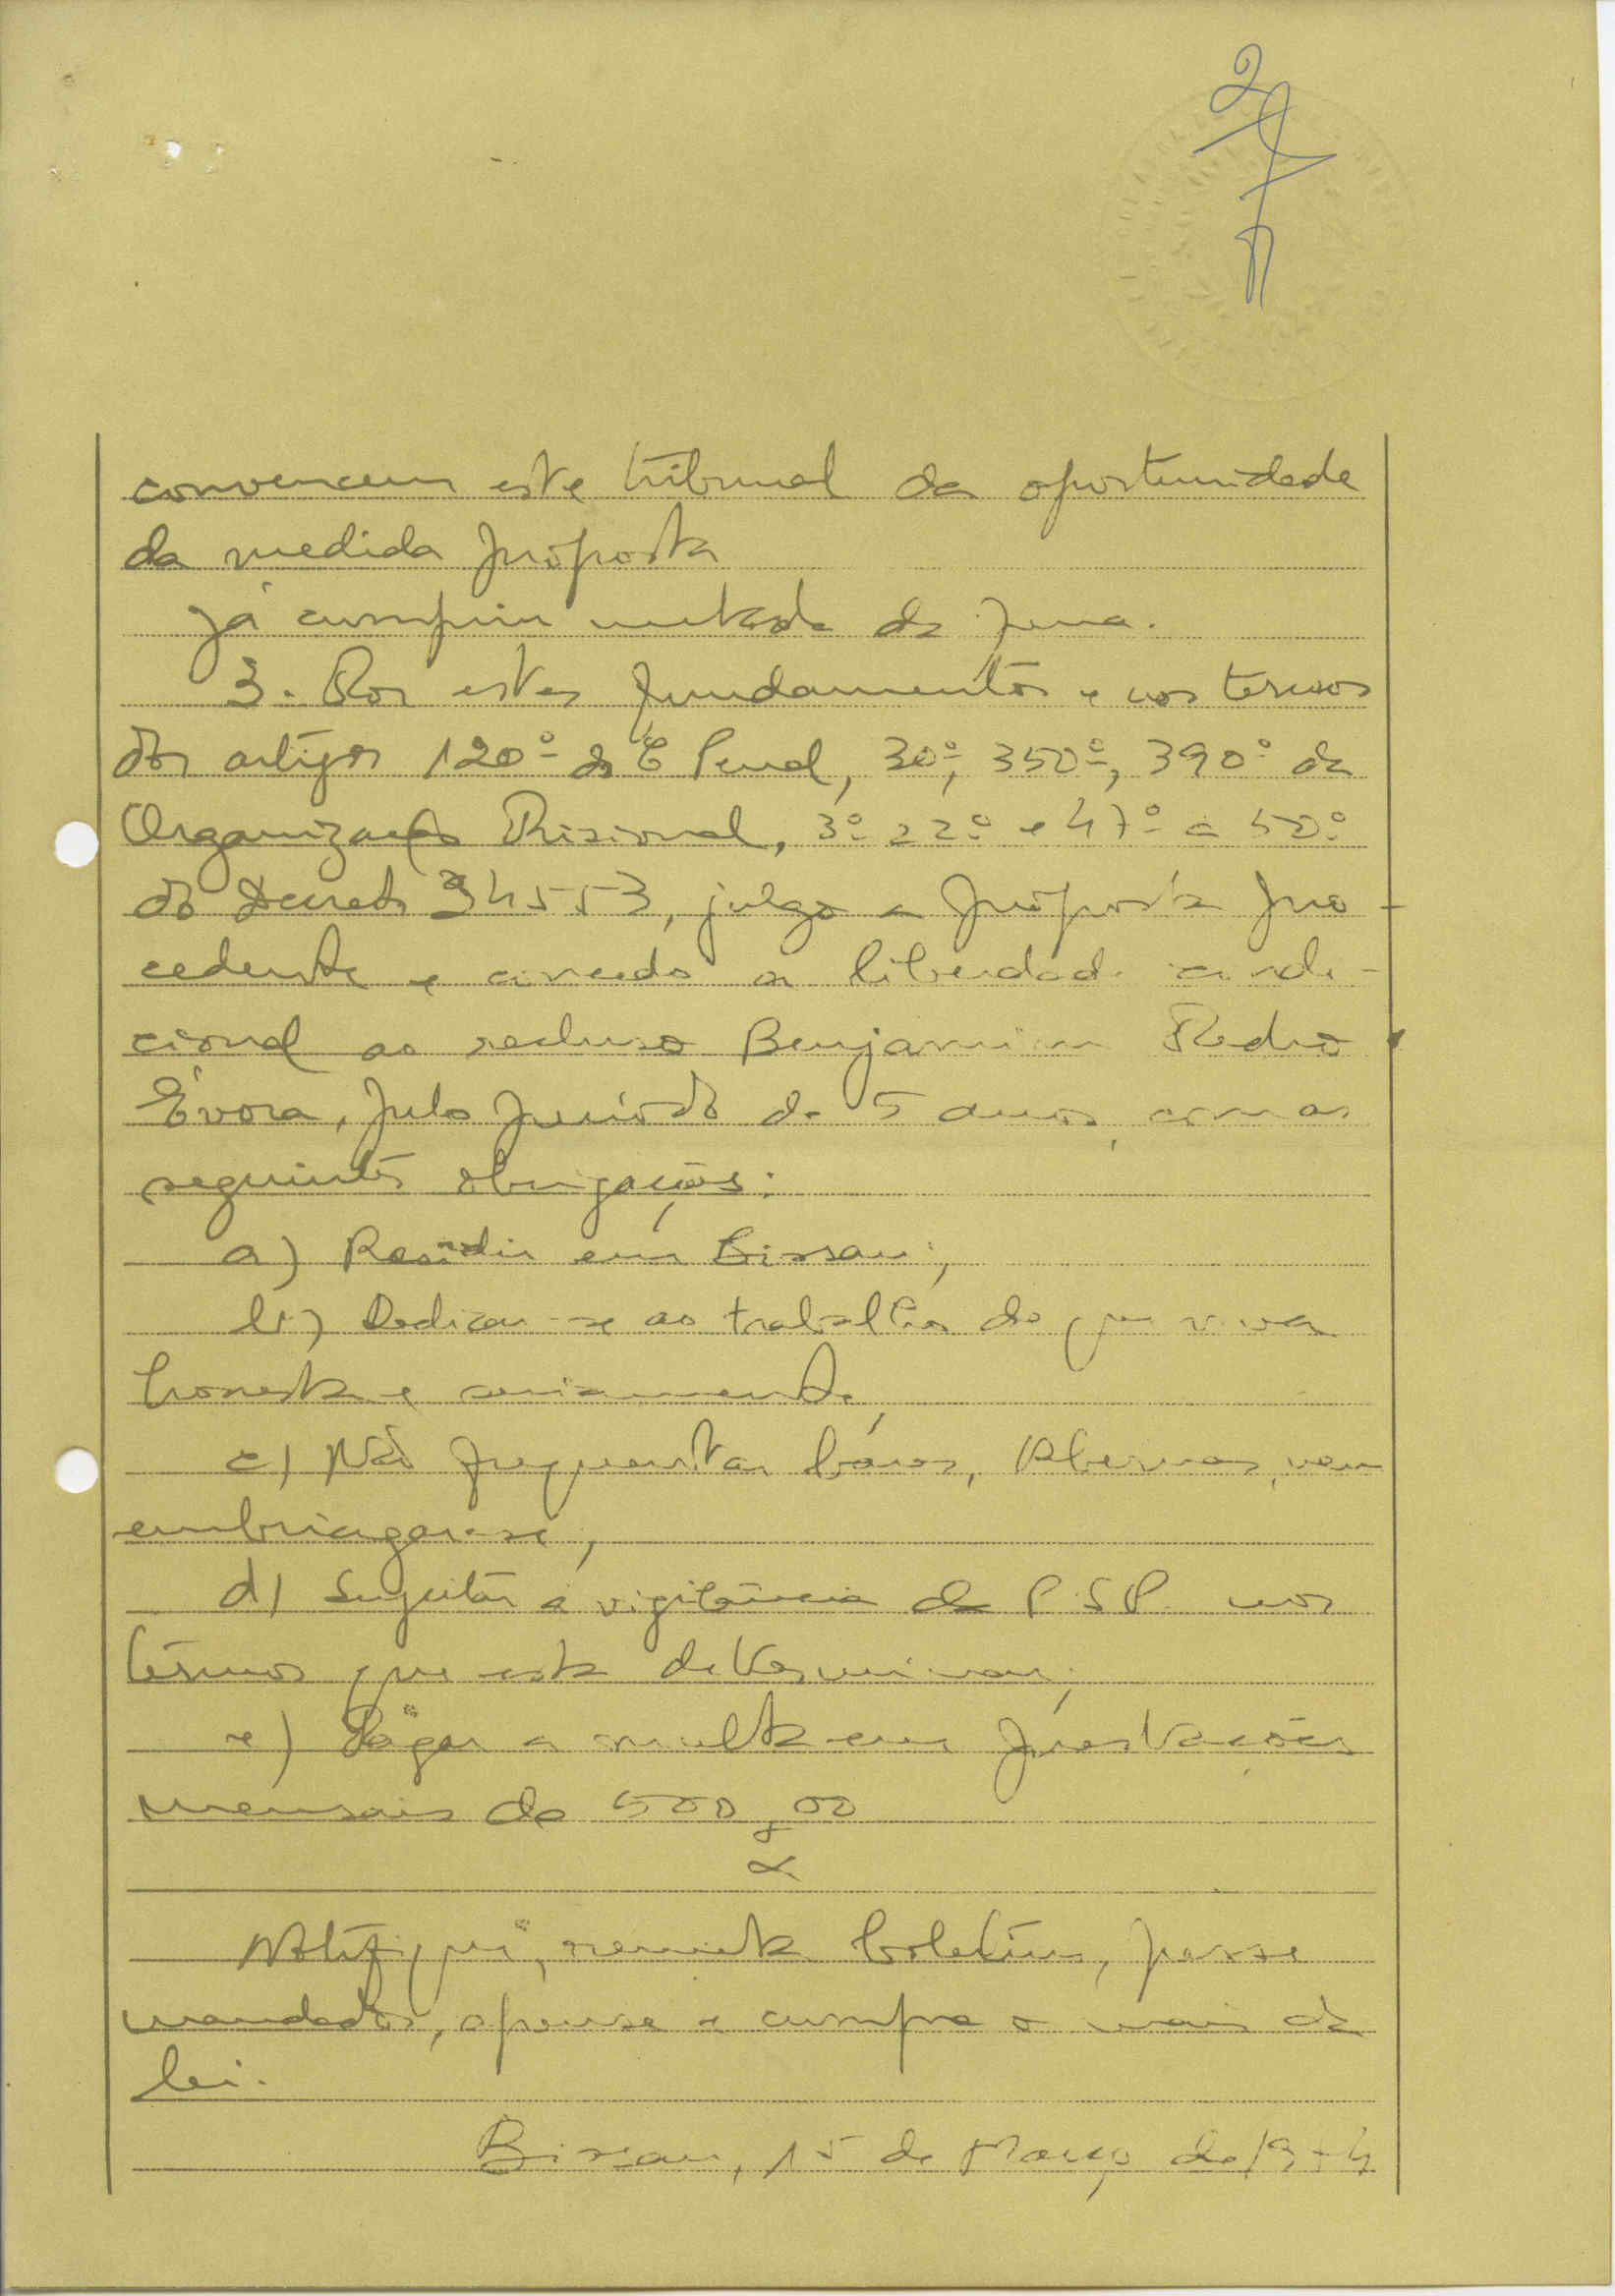 2
convencem este tribunal da oportunidade
da medida proposta
Já cumpriu metade da pena.
3. Por estes fundamentos e nos termos
dos artigos 120º do C Penal, 30º, 350º, 390º da
Organização Prisional, 3º 22º e 47º a 50º
do Decreto 34553, julgo a proposta pro-
cedente e concedo a liberdade condi-
cional ao recluso Benjamim Pedro
Évora, pelo período de 5 anos, com as
seguintes obrigações:
a) Residir em Bissau;
b) Dedicar-se ao trabalho de que viva
honesta e
c) Não frequentar bares, tabernas, nem
embriagar-se;
d) Sujeitar à vigilância da P.S.P. nos
termos que esta determinar;
e) Pagar a multa em prestações
mensais de 500,00
Notifique, remeta boletins, passe
mandados, apense e cumpra o mais da
lei.
Bissau, 15 de Março de 1974